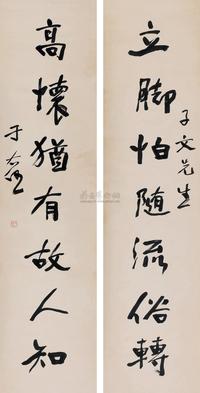 立脚怕随流俗轉
子文先生
高懷猶有故人知
于右任